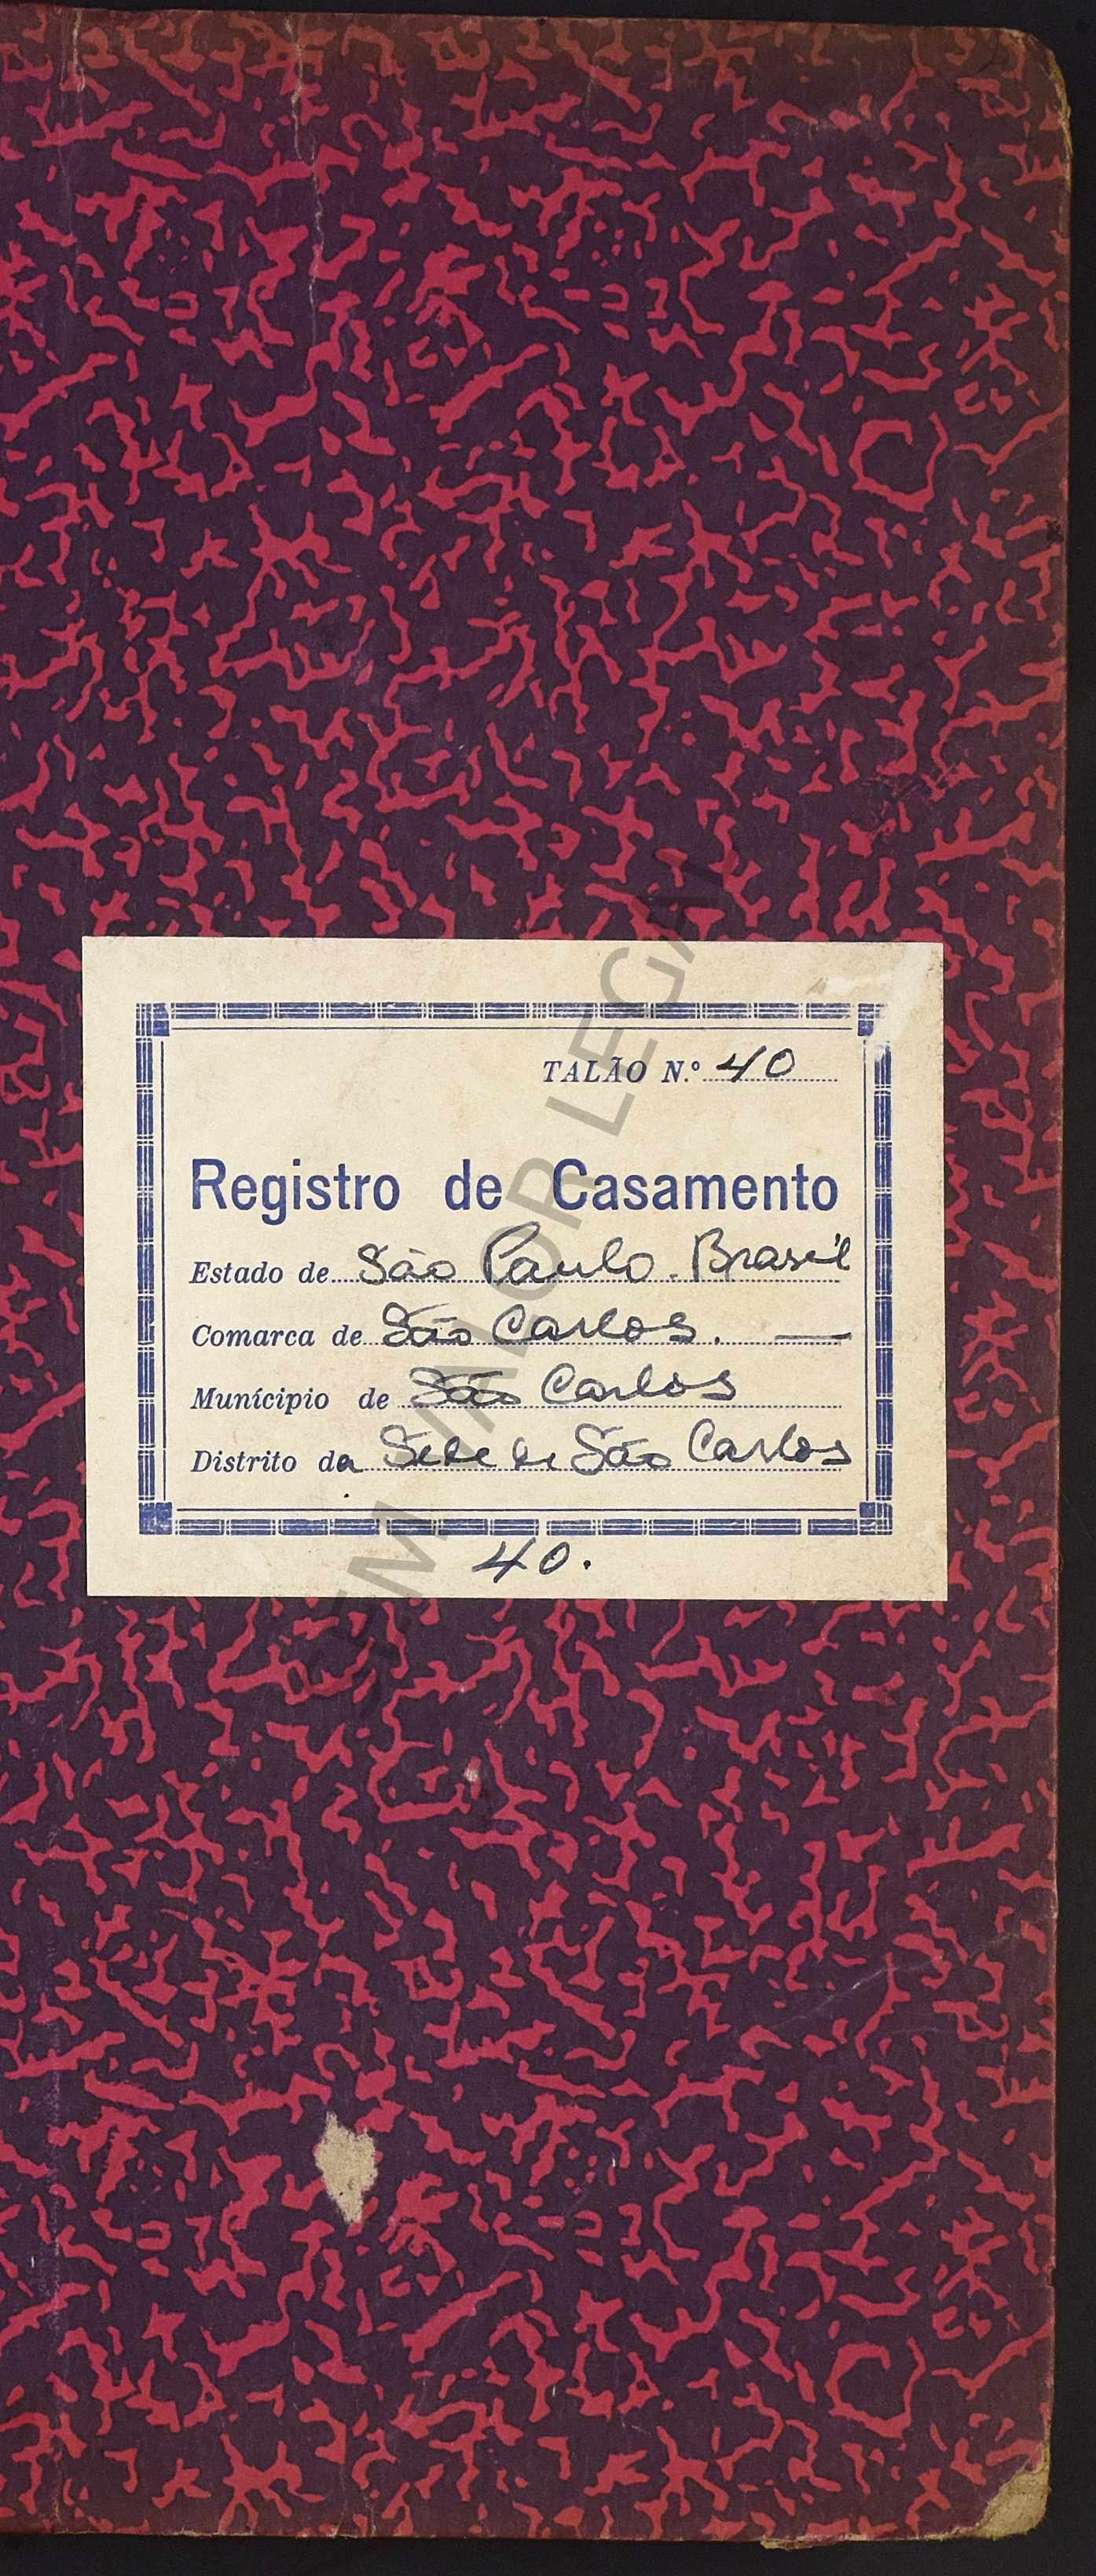 TALÃO N.º 40
Registro de Casamento
Estado de São Paulo. Brasil
Comarca de São Carlos. —
Munícipio de São Carlos
Distrito da Sede de São Carlos
40.
SEM VALOR LEGAL